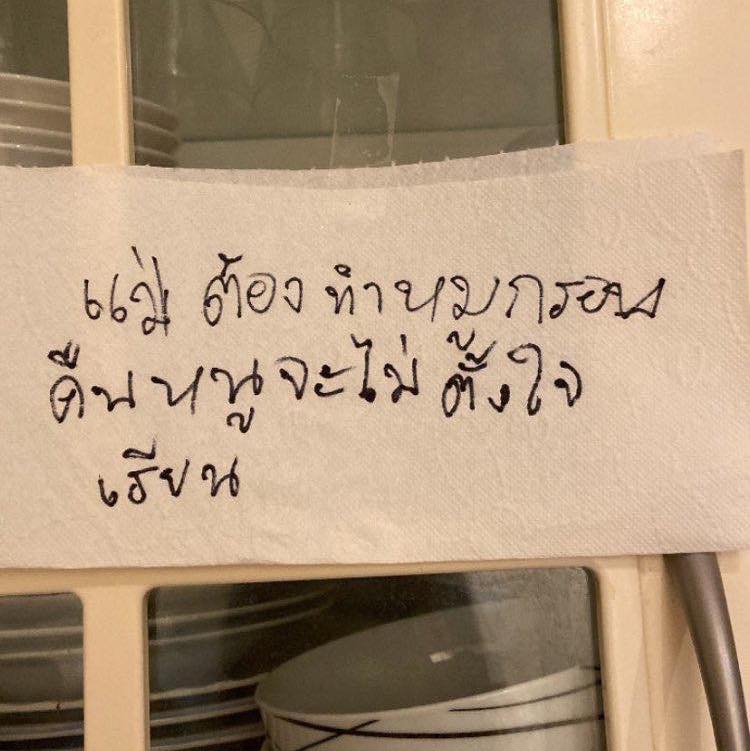 แม่ ต้อง ทำหมูกรอบ
คืนหนูจะไม่ ตั้งใจ
เรียน